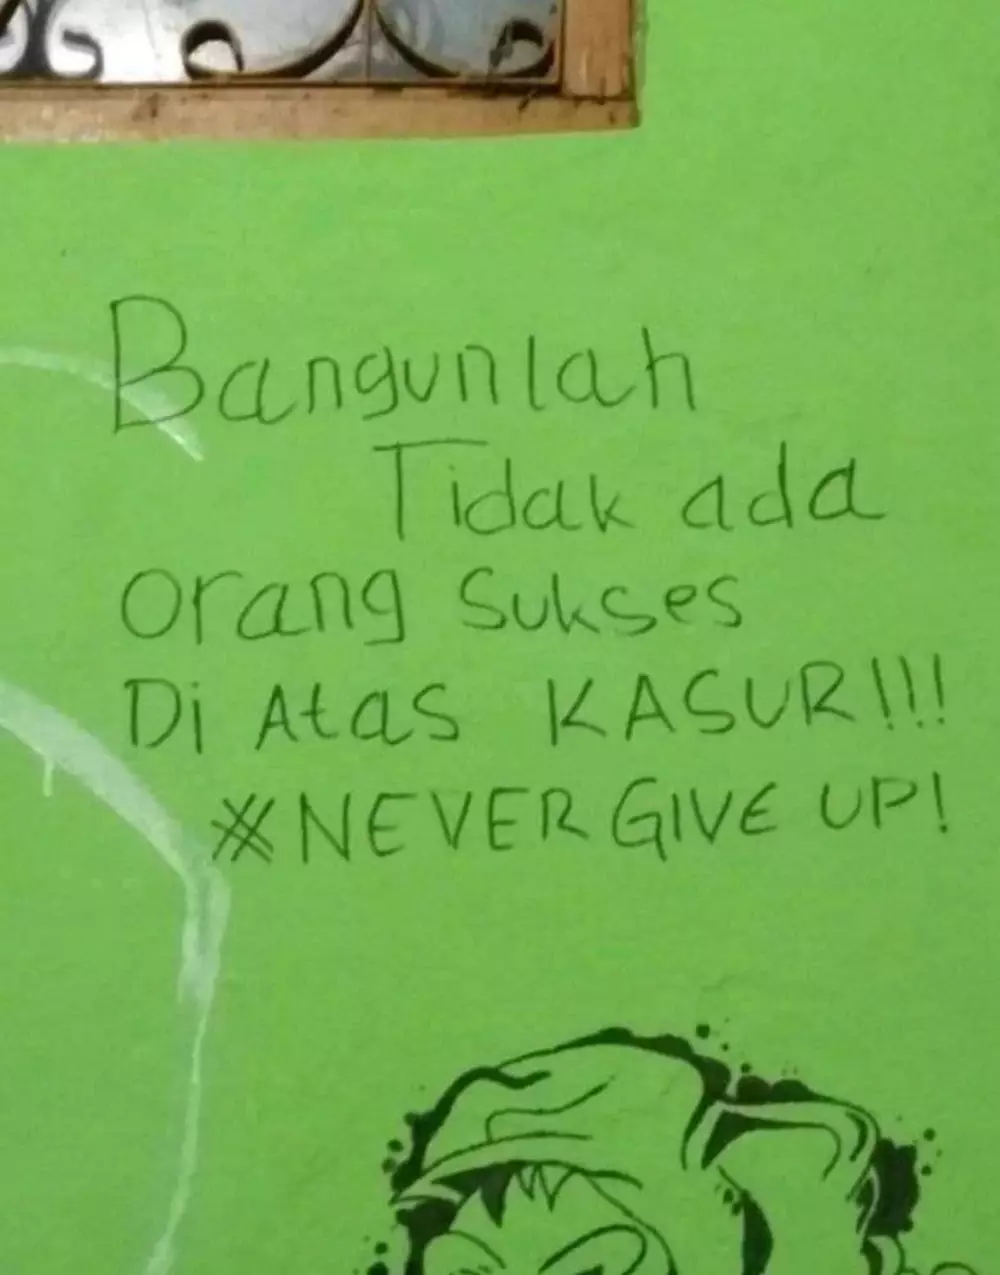 Bangunlah
Tidak ada
orang sukses
Di Atas KASUR!!!
#NEVER GIVE UP!